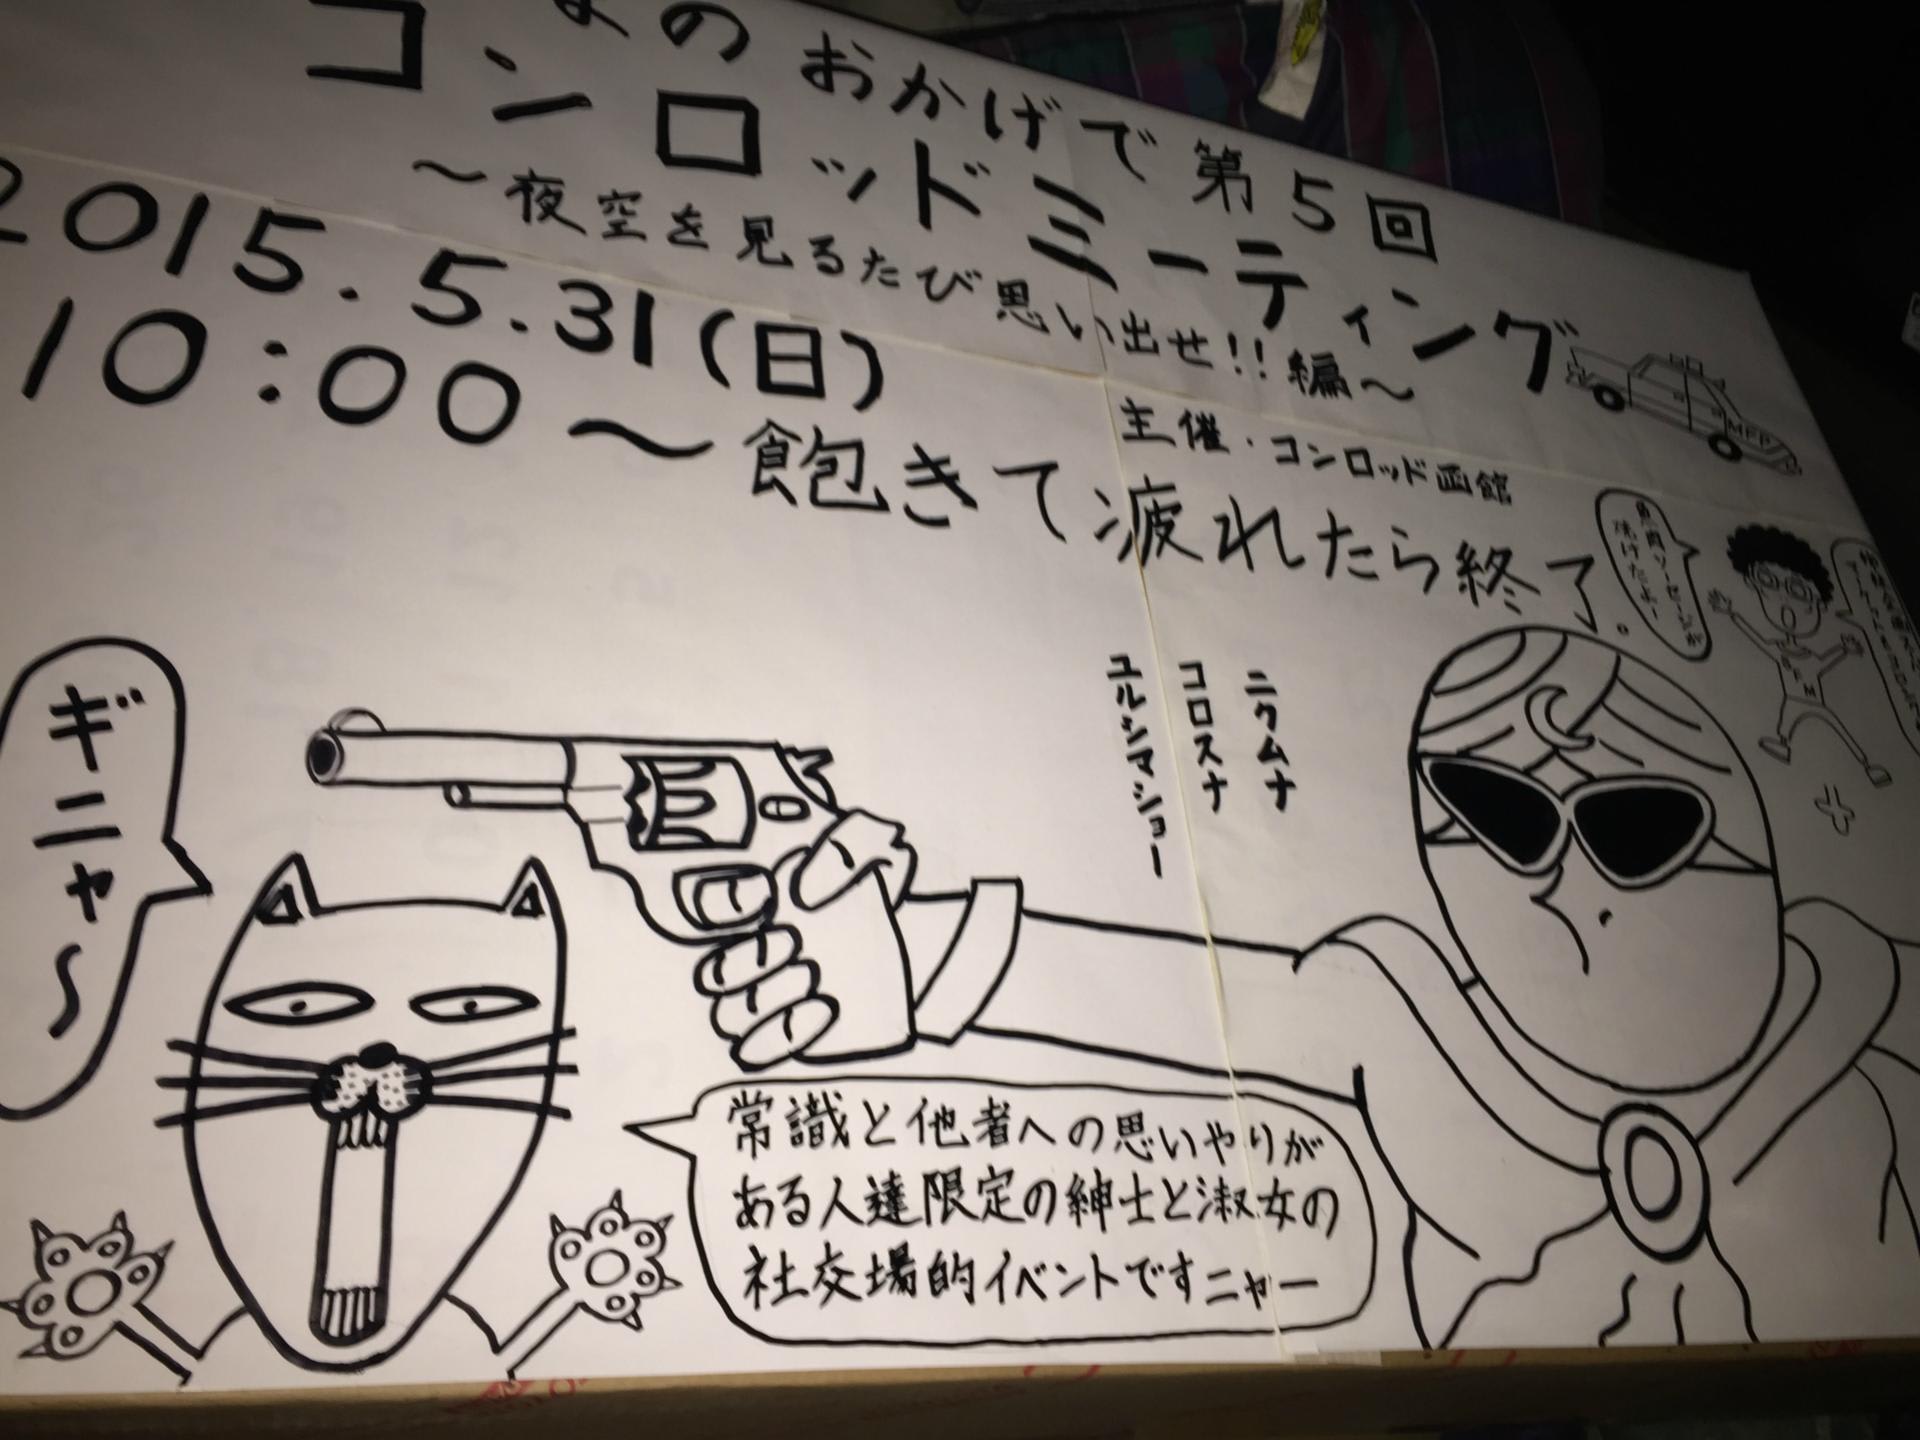 のおかげで第5回
コンロッドミーティング
～夜空を見るたび思い出せ!!編～
2015.5.31(日)
主催・コンロッド函館
10:00～飽きて疲れたら終了。
MFP
魚肉ソーセージが
焼けたよー
ニクムナ
コロスナ
ユルシマショー
ギニャ～
常識と他者への思いやりが
ある人達限定の紳士と淑女の
社交場的イベントですニャー